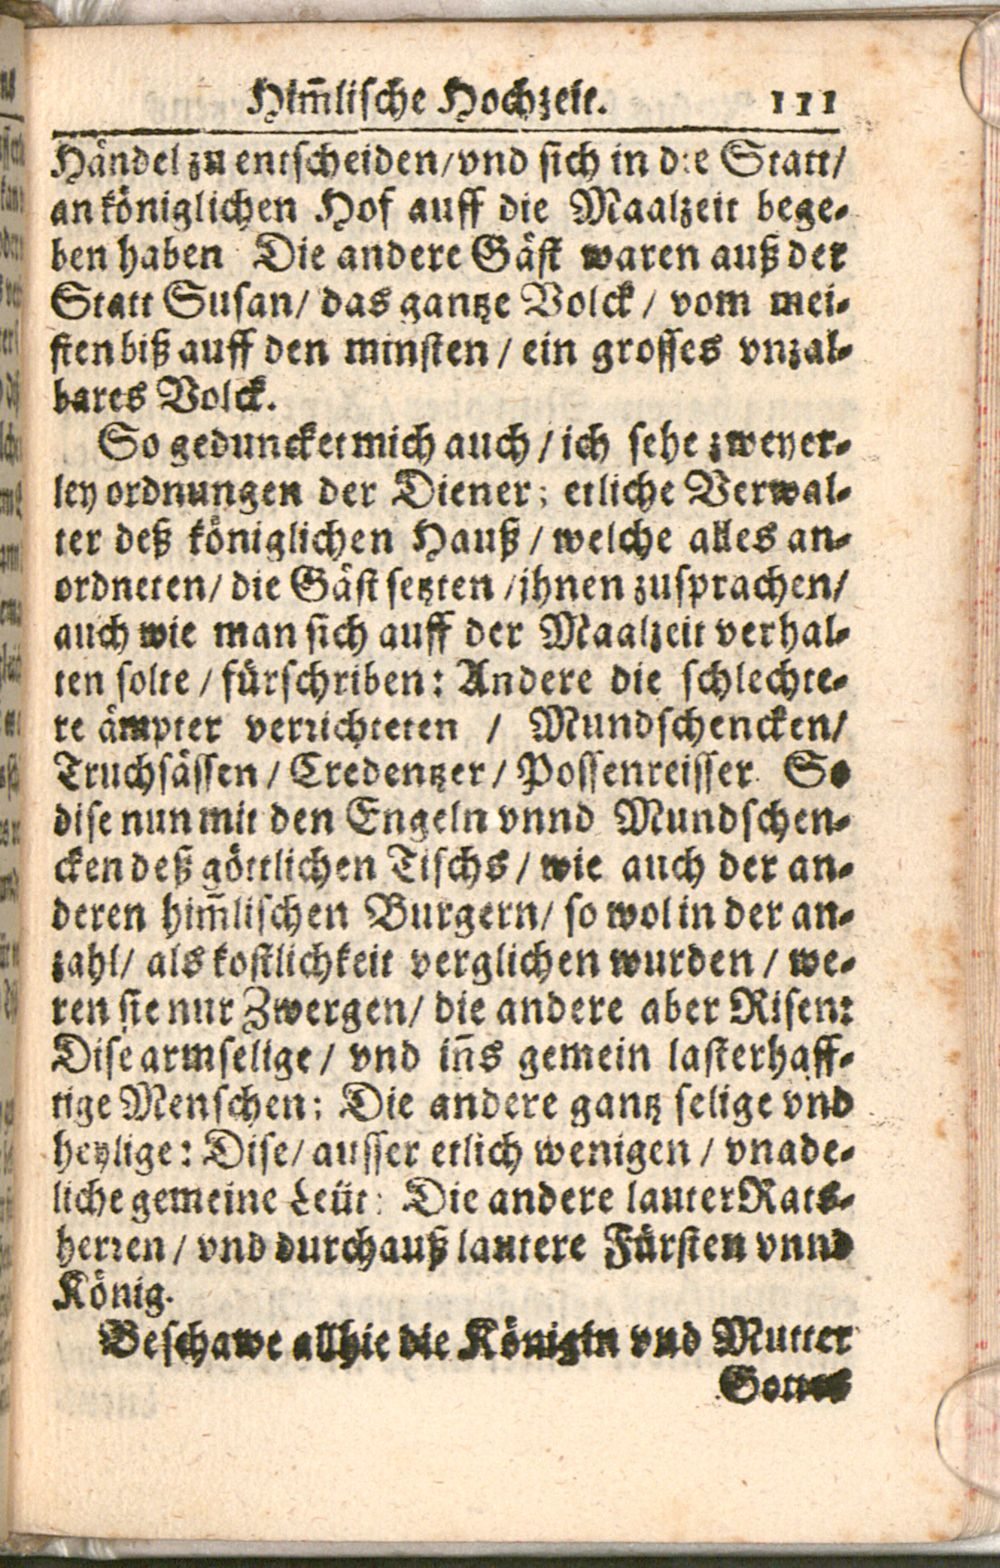 Him̃lische Hochzeit. 111
Händel zu entscheiden/ vnd sich in die Statt/
an königlichen Hof auff die Maalzeit bege-
ben haben Die andere Gäst waren auß der
Statt Susan/ das gantze Volck / vom mei-
sten biß auff den minsten / ein grosses vnzal-
bares Volck.
So geduncket mich auch / ich sehe zweyer-
ley ordnungen der Diener; etliche Verwal-
ter deß königlichen Hauß / welche alles an-
ordneten/ die Gäst setzten /jhnen zusprachen/
auch wie man sich auff der Maalzeit verhal-
ten solte / fürschriben: Andere die schlechte-
re ämpter verrichteten / Mundschencken/
Truchsässen / Credentzer / Possenreisser So
dise nun mit den Engeln vnnd Mundschen-
cken deß göttlichen Tischs / wie auch der an-
deren him̃lischen Burgern/ so wol in der an-
zahl/ als kostlichkeit verglichen wurden / we-
ren sie nur Zwergen/ die andere aber Risen:
Dise armselige / vnd in̄s gemein lasterhaff-
tige Menschen; Die andere gantz selige vnd
heylige: Dise/ ausser etlich wenigen / vnade-
liche gemeine Leüt: Die andere lauter Rats-
herren / vnd durchauß lautere Fürsten vnnd
König.
Beschawe allhie die Königin vnd Mutter
Gottes